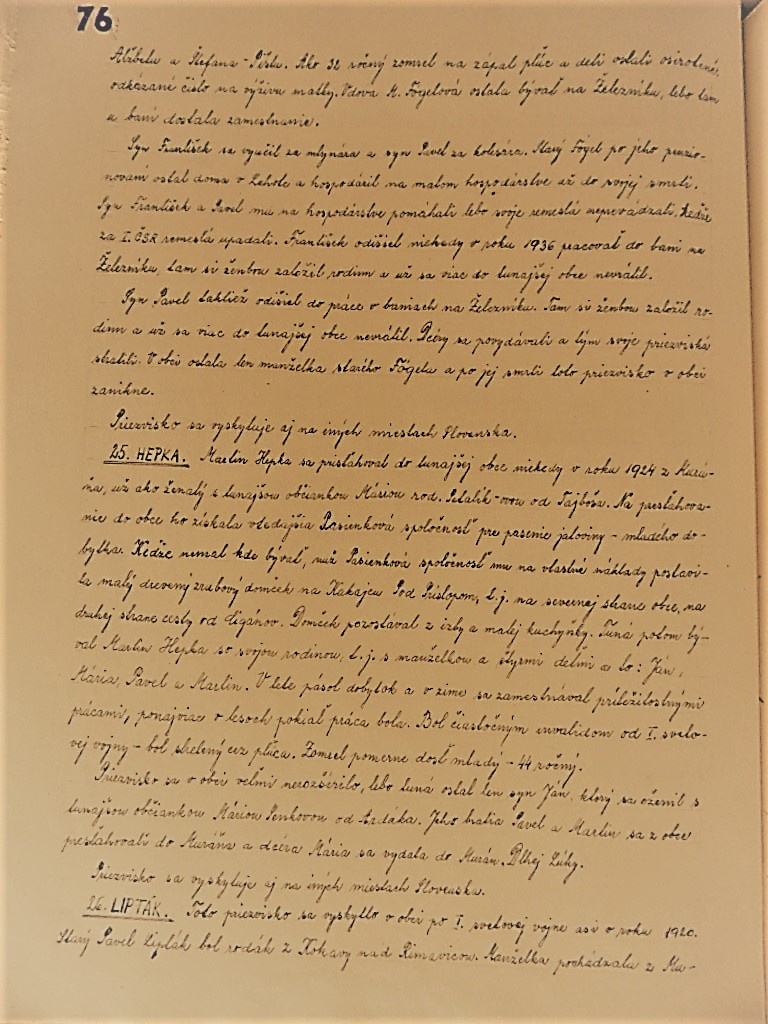 76
Alžbetu a Štefana - Pištu. Ako 32 ročný zomrel na zápal plúc a deti ostali osirotené,
odkázané čisto na výživu matky. Vdova M. Fógelová ostala bývať na Železníku, lebo tam
v bani dostala zamestnanie.
Syn František sa vyučil za mlynára a syn Pavel za kolesára. Starý Fógel po jeho penzio-
novaní ostal doma v Lehote a hospodáril na malom hospodárstve až do svojej smrti.
Syn František a Pavel mu na hospodárstve pomáhali lebo svoje remeslá neprevádzali, kedže
za I. ČSR remeslá upadali. František odišiel niekedy v roku 1936 pracovať do baní na
Železníku, tam si ženbou založil rodinu a už sa viac do tunajšej obce nevrátil.
Syn Pavel taktiež odišiel do práce v baniach na Železníku. Tam si ženbou založil ro-
dinu a už sa viac do tunajšej obce nevrátil. Dcéry sa povydávali a tým svoje priezviská
stratili. V obci ostala len manželka starého Fógela a po jej smrti toto priezvisko v obci
zanikne.
Priezvisko sa vyskytuje aj na iných miestach Slovenska.
25. HEPKA. Martin Hepka sa prisťahoval do tunajšej obce niekedy v roku 1924 z Murá-
ňa, už ako ženatý s tunajšou občiankou Máriou rod. Petalík-ovou od Tajboša. Na presťahova-
nie do obce ho získala vtedajšia Pasienková spoločnosť pre pasenie jaloviny - mladého do-
bytka. Kedže nemal kde bývať, nuž Pasienková spoločnosť mu na vlastné náklady postavi-
la malý drevený zrubový domček na Kakajcu Pod Príslopom, t.j. na severnej strane obce, na
druhej strane cesty od Cigánov. Domček pozostával z izby a malej kuchyňky. Tuná potom bý-
val Martin Hepka so svojou rodinou, t.j. s manželkou a štyrmi deťmi a to: Ján,
Mária, Pavel a Martin. V lete pásol dobytok a v zime sa zamestnával príležitostnými
prácami, ponajviac v lesoch pokiaľ práca bola. Bol čiastočným invalidom od I. sveto-
vej vojny - bol strelený cez plúca. Zomrel pomerne dosť mladý - 44 ročný.
Priezvisko sa v obci veľmi nerozšírilo, lebo tuná ostal len syn Ján, ktorý sa oženil s
tunajšou občiankou Máriou Senkovou od Ardáka. Jeho bratia Pavel a Martin sa z obce
presťahovali do Muráňa a dcéra Mária sa vydala do Murán. Dlhej Lúky.
Priezvisko sa vyskytuje aj na iných miestach Slovenska.
26. LIPTÁK. Toto priezvisko sa vyskytlo v obci po I. svetovej vojne asi v roku 1920.
Starý Pavel Lipták bol rodák z Kokavy nad Rimavicou. Manželka pochádzala z Mu-